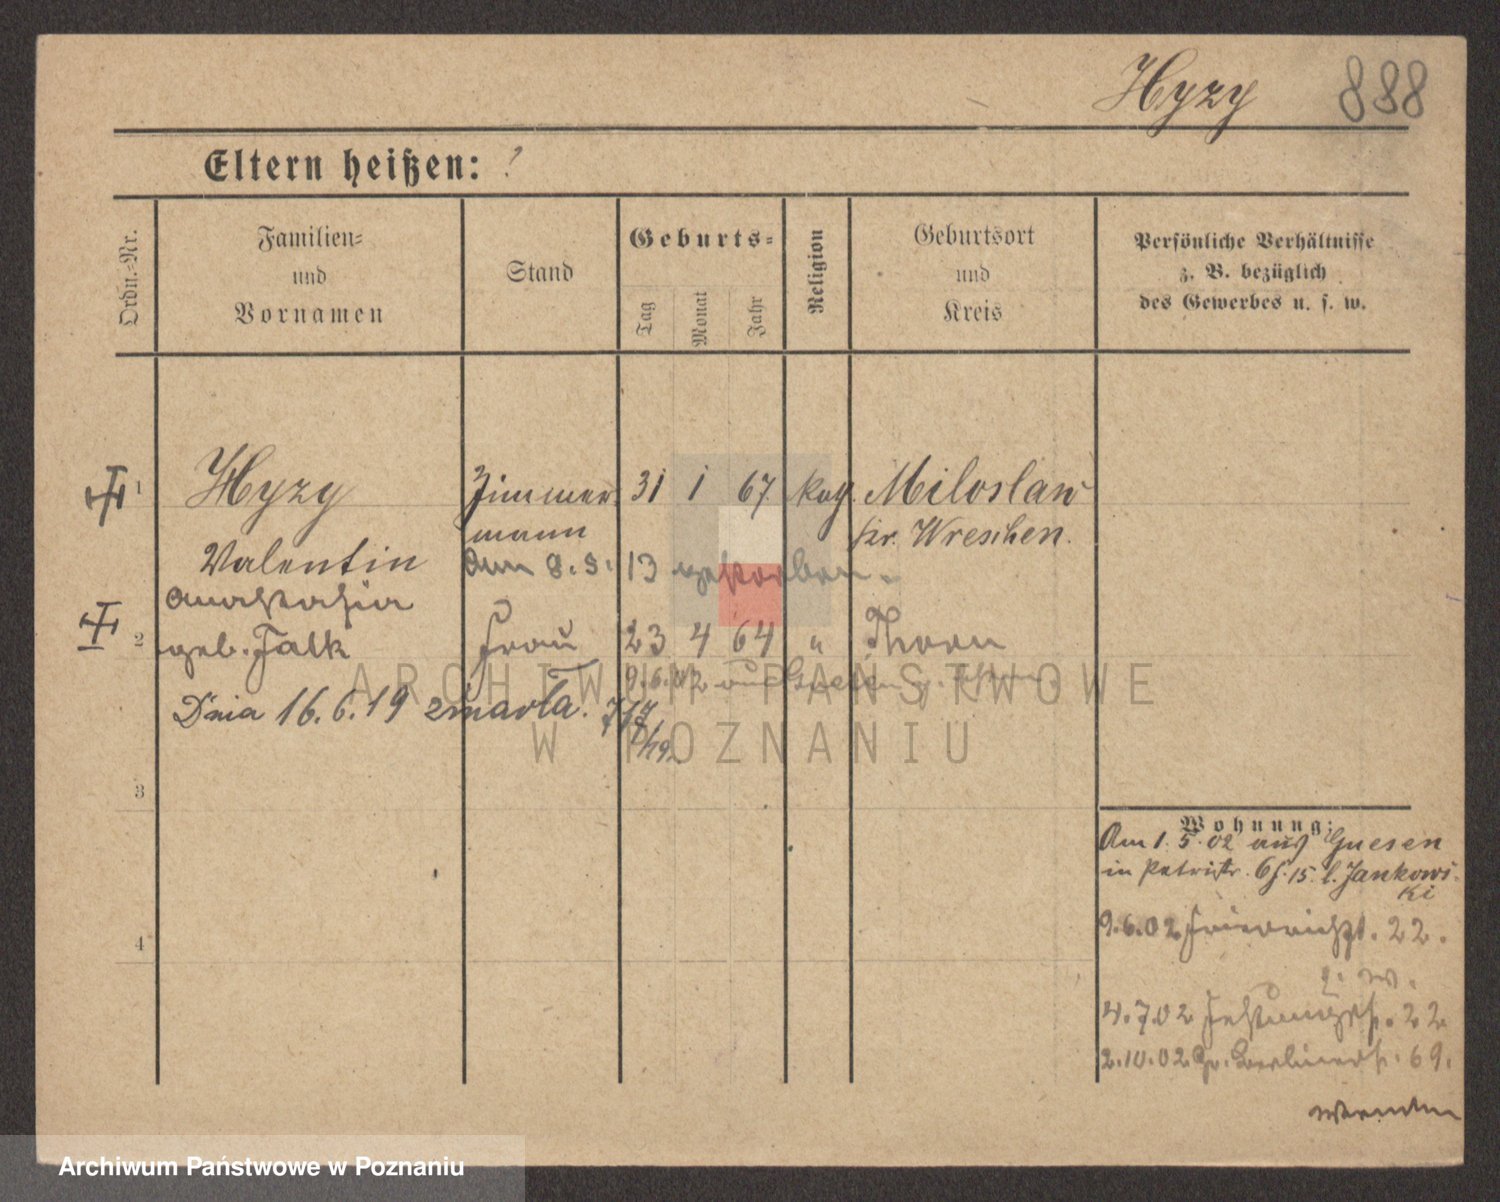 Hyzy 888
Eltern heißen: ?
Ordn.-Nr.
Familien-
und
Vornamen
Stand
Geburts-
Tag
Monat
Jahr
Religion
Geburtsort
und
Kreis
Persönliche Verhältnisse
z. B. bezüglich
des Gewerbes u. s. w.
1 Hyzy Zimmer 31 1 67 kath. Miloslaw
mann Kr. Wreschen.
Valentin am 8.3.13 gestorben.
Anastasia
2 geb. Falk Frau 23 4 64 " Thorn
9.6.02
Dnia 16.6.19 zmarła.
3
4
Wohnung:
Am 1.5.02 aus Gnesen
in Petristr. 6 15 b. Jankows-
ki
9.6.02 22.
4.7.02 22
2.10.02 Gr. Berlinerstr. 69.
wenden
ARCHIWUM PAŃSTWOWE
W POZNANIU
Archiwum Państwowe w Poznaniu